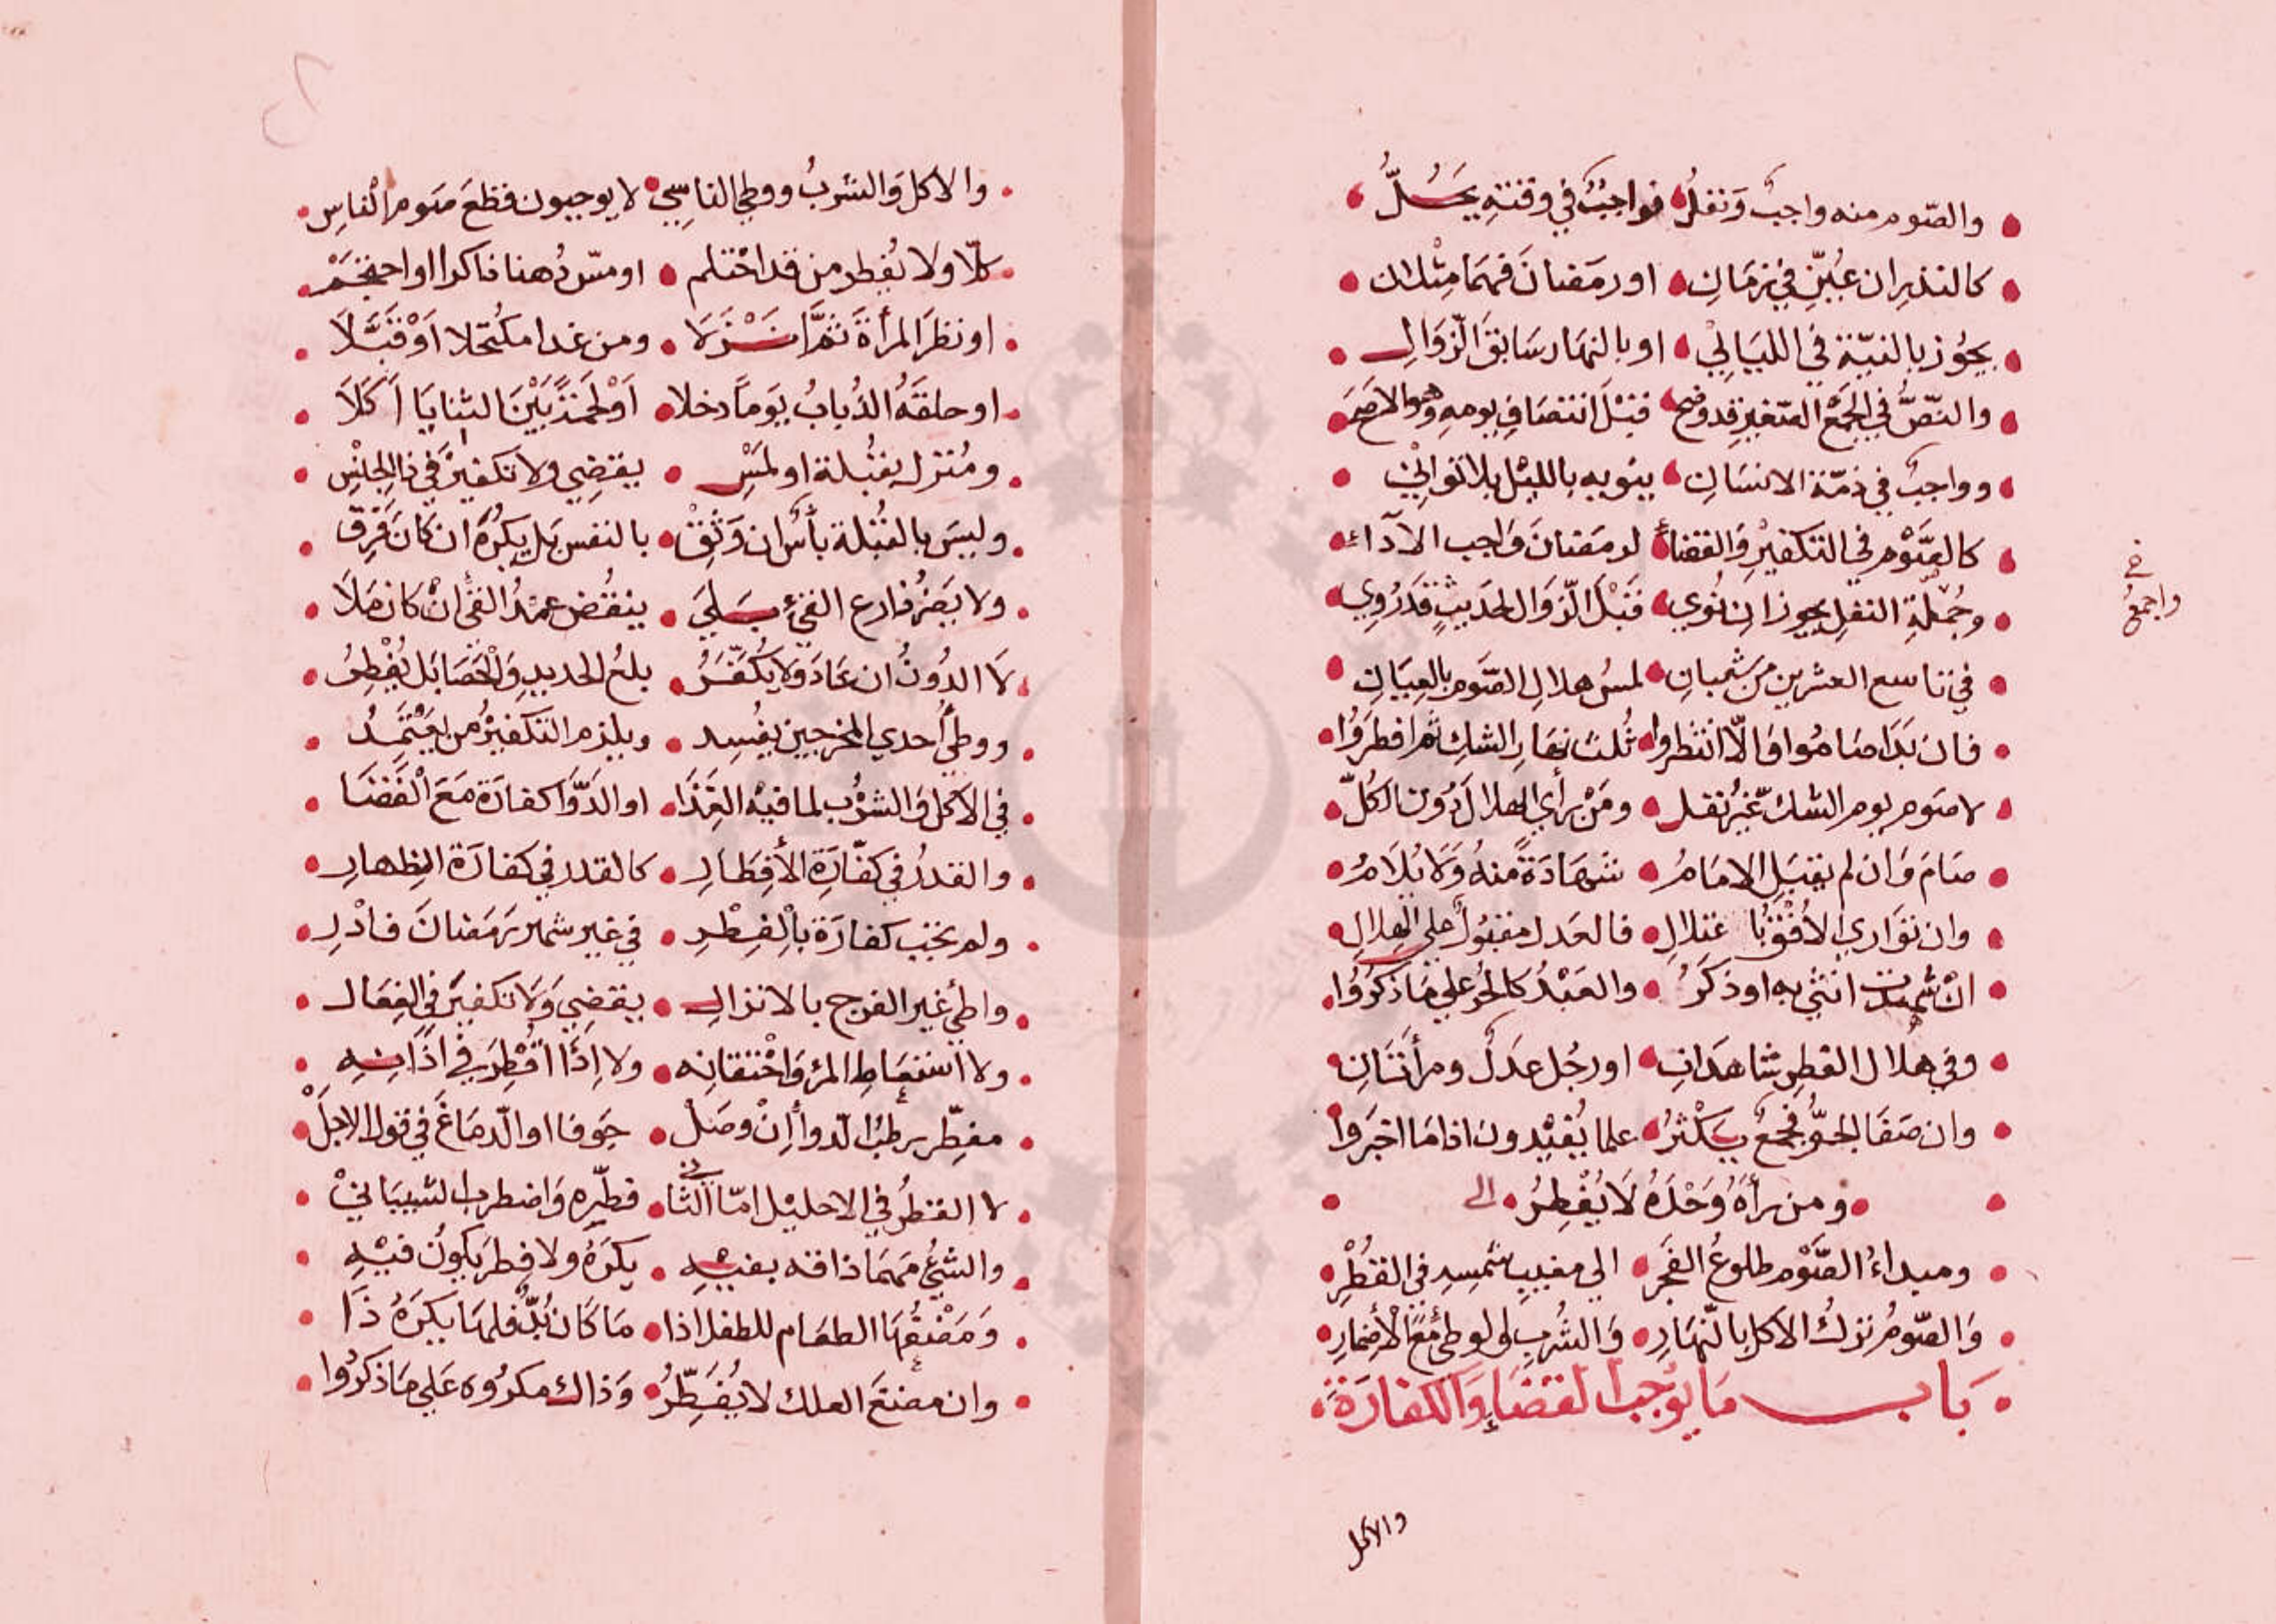 والصّوم منه واجبٌ وَنفلُ فواجبٌ في وقته يَحُلُّ
كالنذر ان عُيّن في زمَانِ او رمَضانَ فهمَا مِثْلان
يجُوز بالنيّة في الليَالِيْ او بالنهَار سَابقَ الزّوَالِ
والنّصُّ في الجمع الصّغير قد وضح قبْلَ انتصَافِ يومهِ وهو الاصَح
وواجبٌ في ذمّة الانسَانِ ينويه بالليْل بلا توانِيْ
كالصَّوْم في التكفيْرِ وَالقضاءِ لرمَضانَ وَاجب الاَداءِ
وجُمْلَةِ النفلِ يجوز ان نُوي قَبْلَ الزّوَال لحَديثٍ قَدَ رُوِي
واجمعُ
في تاسع العشرين من شعْبانِ لمسُ هلالِ الصَّومِ بالعِيَانِ
فان بَدَا صَامُوا وَالّا انتظروا ثُلثَ نهَارِ الشك ثم افطرَوُا
لا صَوم يوم الشك غيْرُ نفل ومَنْ رأي الهلالَ دُون الكُلّ
صَامَ وَان لم يقبَلِ الامَامُ شهَادَةً منهُ وَلَا يُلَامُ
وان توَاري الافْقُ باغتلالِ فالعَدل مقبُولٌ علي الهلالِ
انْ شهدت انثي به او ذكَرُ والعَبْدُ كالحُر علي مَا ذكَرُوا
وفي هلال الفطرِ شاهدَانِ او رجُل عدلٌ ومرأتَانِ
وان صَفَا الجوُّ فجمعٌ يَكْثرُ علما يُفيْدون اذا مَا اخبَروا
ومن رأهُ وَحْدَهُ لَا يُفْطِرُ الي
ومبداءُ الصَّوْم طلوعُ الفَجر الي مغيبِ شمسِهِ في القُطْرِ
وَالصّومُ تركُ الاكل بالنّهَارِ وَالشُرب والوطئ معَ الأضمارِ
بَاب مَا يُوجبُ القضَاءِ وَالكفارَةَ
والاكل
والاكل وَالشربُ ووطي الناسِي لا يوجبون قطعَ صَوم الناسِ
كلّا ولا يُفطر من قد احْتلم او مسّ دُهنا ذاكرا او احتجَمْ
او نظرَ المرأةَ ثمّ انْزَلَا ومن غدا مكُتحلا اوْ قَبَّلَا
او حلقَهُ الذُبابُ يَومًا دخلا اوْ لحمَة بَيْنَ الثنايَا اَكَلَا
ومُنزل بقبُلة او لمَسْ يقضِي ولا تكفيْرَ في ذا الجنْسِ
وليسَ بالقُبْلة بأسٌ ان وَثِقْ بالنفس بَل يكرَهُ ان كَانَ فَرِق
ولا يَضرُ ذارع القئِ يَلي ينقُض عمْدُ القئْ انْ كان مَلَا
لَا الدُونُ ان عَادَ وَلا يُكَفّرُ بلعُ الحديدِ وَالْحَصَا بَل يُفْطِرُ
ووطيُ أحدي المخرجين يفْسِد ويلزم التكفيْرُ من يَعْتَمِدُ
في الأكل وَالشرْب لما فيْه الغذَا او الدَّوَا كفارَة مَعَ الْقَضَا
والقدرُ في كفّارَةِ الأفِطَارِ كالقدر في كفارَة الظِهارِ
ولم يجبْ كفارَة بالْفِطْرِ في غير شهر رَمَضانَ فادْرِ
واطئُ غير الفرج بالانزالِ يقضِي وَلَا تكفيرَ في الفِعَال
ولا استعَاطِ المرْءِ وَاحْتقانِه ولا اِذَا اقْطِرَ في اذَانِهِ
مفطّر رطبُ الدوأِ انْ وصَلْ جَوفا او الدّمَاغَ في قول الاجلّ
لا القطرُ في الاحليْل امّا الثاني فطّره وَاضطرب الشيبَانيْ
والشئُ مَهمَا ذاقه بفيْهِ يكرَهُ ولا فِطرَ يكونُ فيْهِ
وَمَضْغُهَا الطعَام للطفل اذا مَا كَان بُدٌّ فلهَا يكرَهُ ذَا
وان مضغَ العلك لا يُفَطِّرُ وَذاك مكرُوه عَلي مَا ذكرُوا